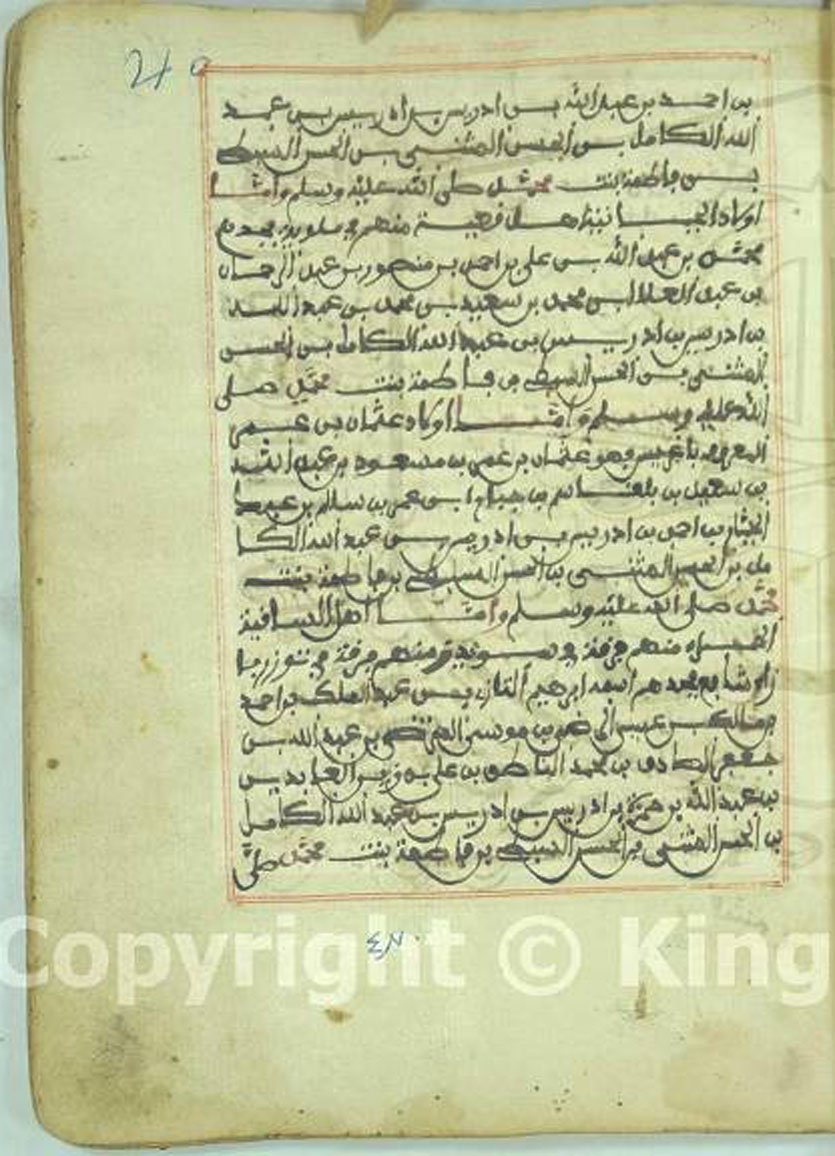 بن احمد بن عبد الله بن ادريس بن ادريس بن عبد
الله الكامل بن الحسن المثنى بن الحسن السبط
بن فاطمة بنت محمد صلى الله عليه وسلم واما
اولاد منهم في
محمد بن عبد الله بن علي بن احمد بن منصور بن عبد الرحمان
بن عبد العلا بن محمد بن سعيد بن محمد بن عبد الله
بن ادريس بن ادريس بن عبد الله الكامل بن الحسن
المثنى بن الحسن السبط بن فاطمة بنت محمد صلى
الله عليه وسلم واما اولاد عثمان بن
المعروف وهو عثمان بن بن مسعود بن عبد الله
بن سعيد بن بلقاسم بن بن عمر بن سالم بن
الجبار بن احمد بن ادريس بن ادريس بن عبد الله الكا
مل بن الحسن المثنى بن الحسن السبط بن فاطمة بنت
محمد صلى الله عليه وسلم واما اهل الساقية
الحمراء منهم فرقة ومنهم فرقة في
جدهم اسمه ابراهيم بن عبد الملك بن احمد
بن مالك بن عيسى بن موسى المرتضى بن عبد الله بن
جعفر الصادق بن محمد الناطق بن علي بن زين العابدين
بن عبد الله بن حمزة بن ادريس بن ادريس بن عبد الله الكامل
بن الحسن المثنى بن الحسن السبط بن فاطمة بنت محمد صلى
Copyright © King